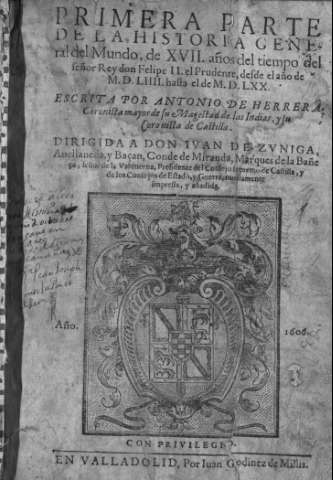 PRIMERA PARTE
DE LA HISTORIA GENE-
ral del Mundo, de XVII. años del tiempo del
señor Rey don Felipe II. el Prudente, desde el año de
M.D.LIIII. hasta el de M.D.LXX.
ESCRITA POR ANTONIO DE HERRERA,
Coronista mayor de su Magestad de las Indias, y su
Coronista de Castilla.
DIRIGIDA A DON IVAN DE ZVNIGA,
Auellaneda, y Baçan, Conde de Miranda, Marques de la Bañe
za, señor de la Valduerna, Presidente del Consejo supremo de Castilla, y
de los Consejos de Estado, y Guerra, nueuamente
impressa, y añadida.
Año. 1606.
CON PRIVILEGIO.
EN VALLADOLID, Por Iuan Godinez de Millis.